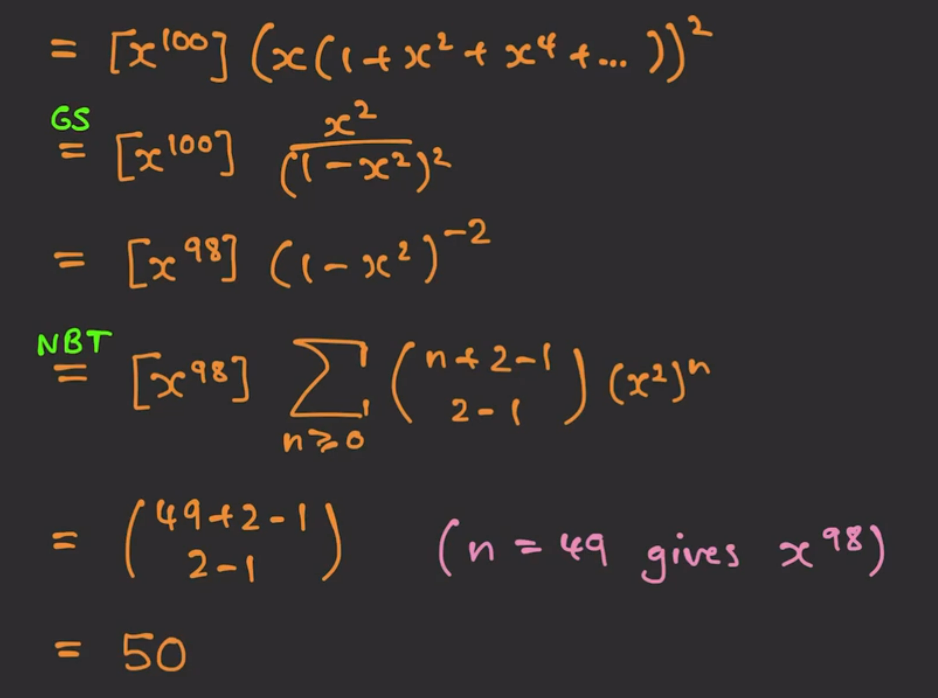 = [x^100] (x(1+x^2+x^4+...))^2
GS
= [x^100] x^2/(1-x^2)^2
= [x^98] (1-x^2)^-2
NBT
= [x^98] ∑_{n⩾0} (n+2-1 choose 2-1) (x^2)^n
= (49+2-1 choose 2-1) (n = 49 gives x^98)
= 50